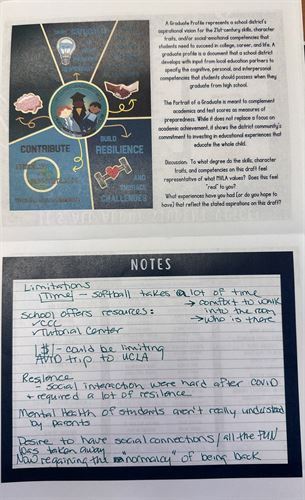 A Graduate Profile represents a school district's
aspirational vision for the 21st-century skills, character
traits, and/or social-emotional competencies that
students need to succeed in college, career, and life. A
graduate profile is a document that a school district
develops with input from local education partners to
specify the cognitive, personal, and interpersonal
competencies that students should possess when they
graduate from high school.
The Portrait of a Graduate is meant to complement
academics and test scores as measures of
preparedness. While it does not replace a focus on
academic achievement, it shows the district community's
commitment to investing in educational experiences that
educate the whole child.
Discussion: To what degree do the skills, character
traits, and competencies on this draft feel
representative of what MVLA values? Does this feel
"real" to you?
What experiences have you had (or do you hope to
have) that reflect the stated aspirations on this draft?
CONTRIBUTE
BUILD
RESILIENCE
AND
EMBRACE
CHALLENGES
NOTES
Limitations
Time - softball takes a lot of time
→ comfort to walk
into the room
→ who is there
School offers resources:
✓ CCC
✓ Tutorial Center
$ - could be limiting
AVID trip to UCLA
Resilence
- social interaction were hard after COVID
+ required a lot of resilence
Mental Health of students aren't really understood
by parents
Desire to have social connections / all the FUN
was taken away
Now regaining the "normalcy" of being back